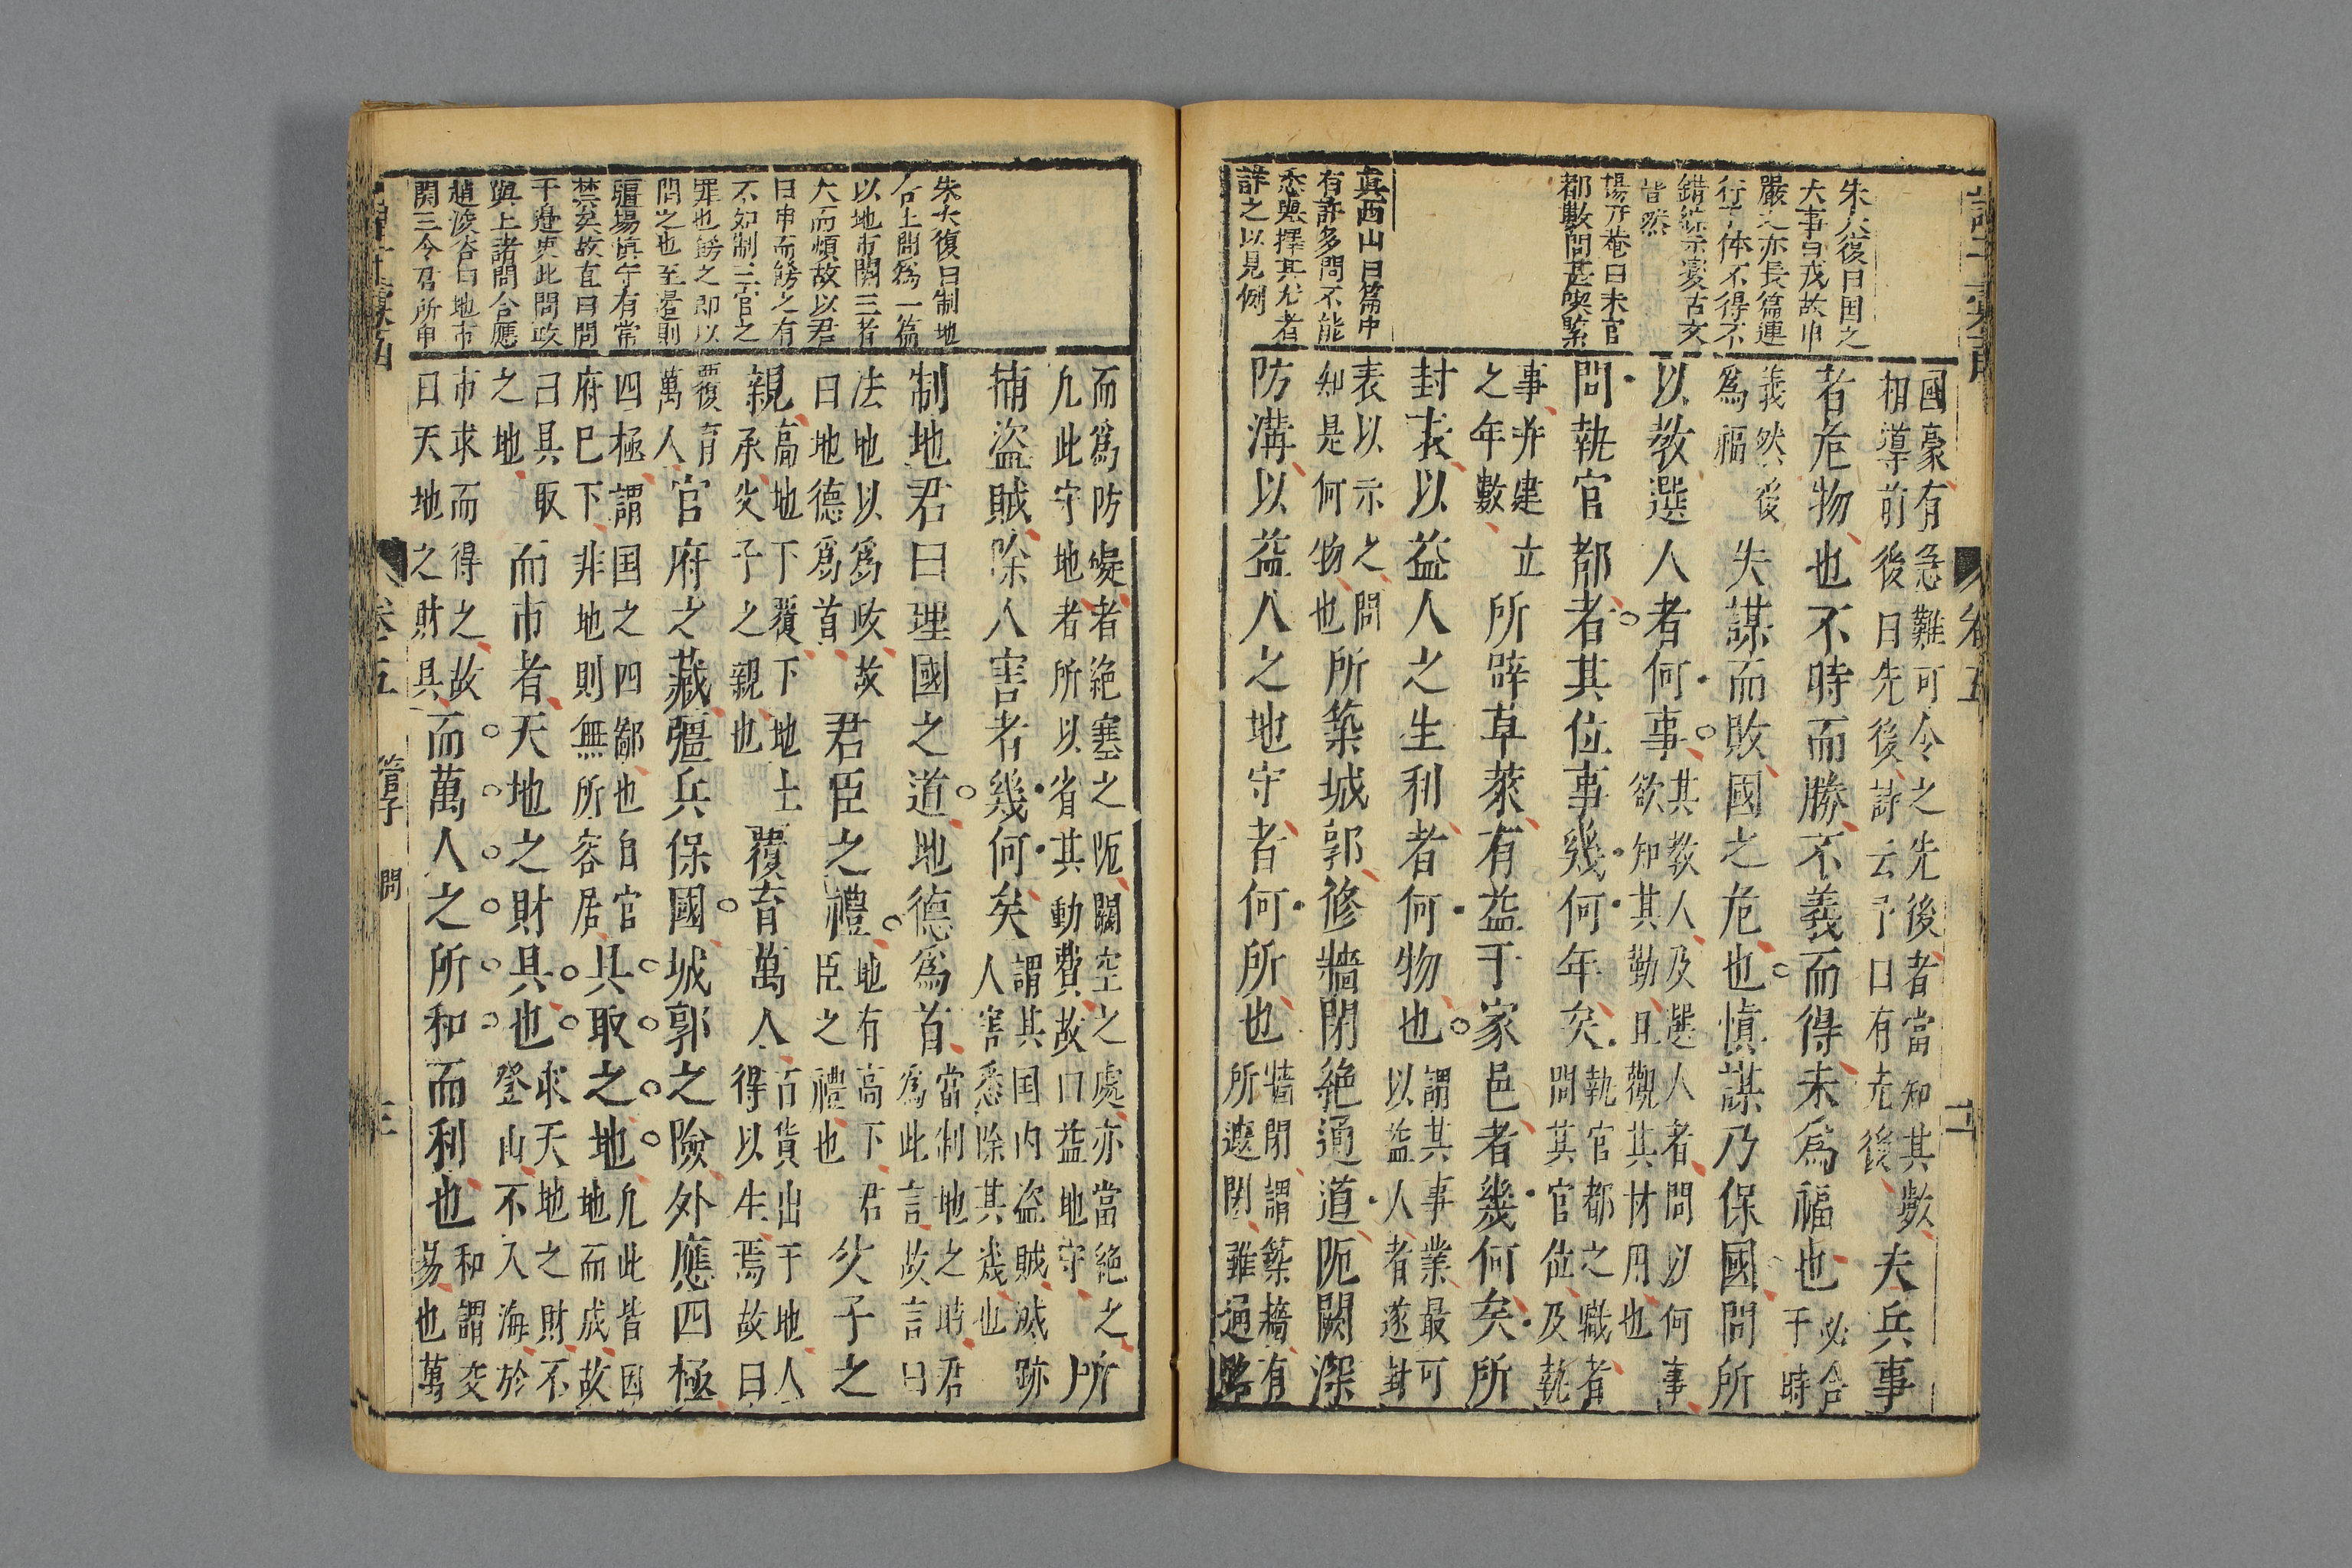 朱大復曰因之
大事曰戎故申
嚴之亦長篇連
行文体不得不
錯綜示變古文
皆然
楊升菴曰末官
都數問甚喫緊
真西山曰篇中
有許多問不能
悉與擇其尤者
詳之以見例
國豪有急難可令之先後者當知其數
相導前後曰先後詩云予曰有先後
夫兵事
者危物也不時而勝不義而得未為福也
必合
于時
義然後
為福
失謀而敗國之危也慎謀乃保國問所
以教選人者何事
其教人及選人者問以何事
欲知其勤且觀其材用也
問執官都者其位事幾何年矣
執官都之職者
問其官位及執
事并建立
之年數
所辟草萊有益于家邑者幾何矣所
封表以益人之生利者何物也
謂其事業最可
以益人者遂封
表以示之問
知是何物也
所築城郭修牆閉絕通道阨闕深
防溝以益人之地守者何所也
牆閉謂築牆有
所遮閉雖通路
卷五
二
朱大復曰制地
合上問為一篇
以地市關三者
大而煩故以君
曰申而餝之有
不如制三官之
罪也餝之即以
問之也至邊則
疆場慎守有常
禁矣故直曰問
于邊吏此問政
與上諸問合應
趙浚谷曰地市
關三令君所申
而為防礙者絕塞之阨闕空之處亦當絕之
凡此守地者所以省其動費故曰益地守
所
捕盜賊除人害者幾何矣
謂其国内盜賊滅跡
人害悉除其幾也
制地君曰理國之道地德為首
當制地之時君
為此言故言曰
法地以為政故
曰地德為首
君臣之禮
地有高下君
臣之禮也
父子之
親
高地下覆下地士
承父子之親也
覆育萬人
百貨出于地人
得以生焉故曰
覆育
萬人
官府之藏疆兵保國城郭之險外應四極
四極謂国之四鄙也自官
府已下非地則無所容居
具取之地
凡此皆因
地而成故
曰具取
之地
而市者天地之財具也
求天地之財不
登山不入海於
市求而得之故
曰天地之財具
而萬人之所和而利也
和謂交
易也萬
卷五
管子
問
三